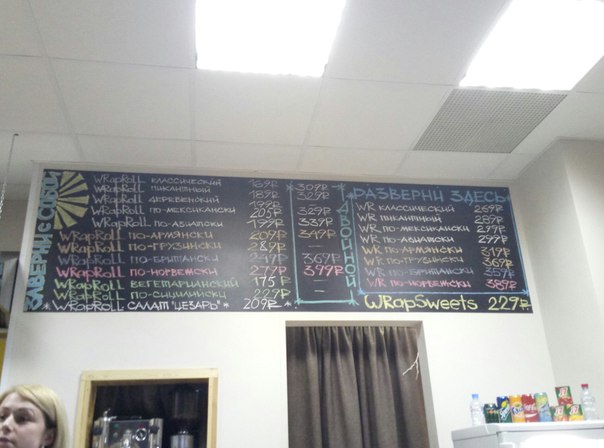 ЗАВЕРНИ с СОБОЙ
WRapRoll классический 169₽ 309₽
WRapRoll пикантный 189₽ 329₽
WRapRoll деревенский 199₽
WRapRoll по-мексикански 205₽ 329₽
WRapRoll по-азиатски 199₽ 339₽
WRapRoll по-армянски 209₽ 349₽
WRapRoll по-грузински 289₽ —
WRapRoll по-британски 369₽
WRapRoll по-норвежски 279₽ 399₽
WRapRoll вегетарианский 175₽ —
WRapRoll по-сицилийски 229₽ —
* WRapRoll САЛАТ "ЦЕЗАРЬ" * 209₽
ДВОЙНОЙ
РАЗВЕРНИ ЗДЕСЬ
WR классический 269₽
WR пикантный 289₽
WR по-мексикански 299₽
WR по-азиатски 299₽
WR по-армянски 319₽
WR по-грузински 369₽
WR по-британски 359₽
WR по-норвежски 389₽
WRapSweets 229₽